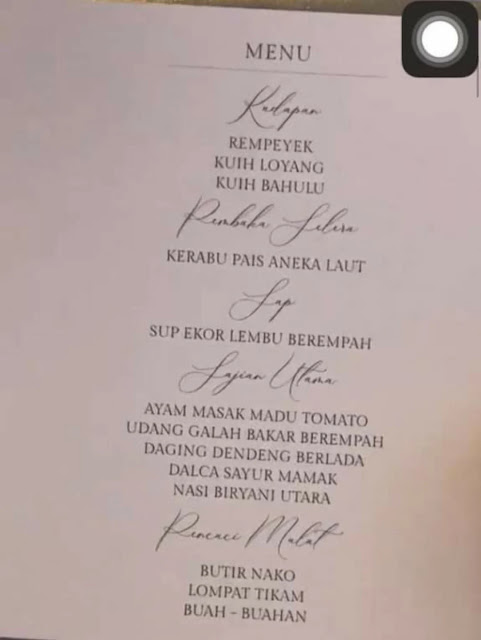 MENU
Kudapan
REMPEYEK
KUIH LOYANG
KUIH BAHULU
Pembuka Selera
KERABU PAIS ANEKA LAUT
Sup
SUP EKOR LEMBU BEREMPAH
Sajian Utama
AYAM MASAK MADU TOMATO
UDANG GALAH BAKAR BEREMPAH
DAGING DENDENG BERLADA
DALCA SAYUR MAMAK
NASI BIRYANI UTARA
Pencuci Mulut
BUTIR NAKO
LOMPAT TIKAM
BUAH - BUAHAN